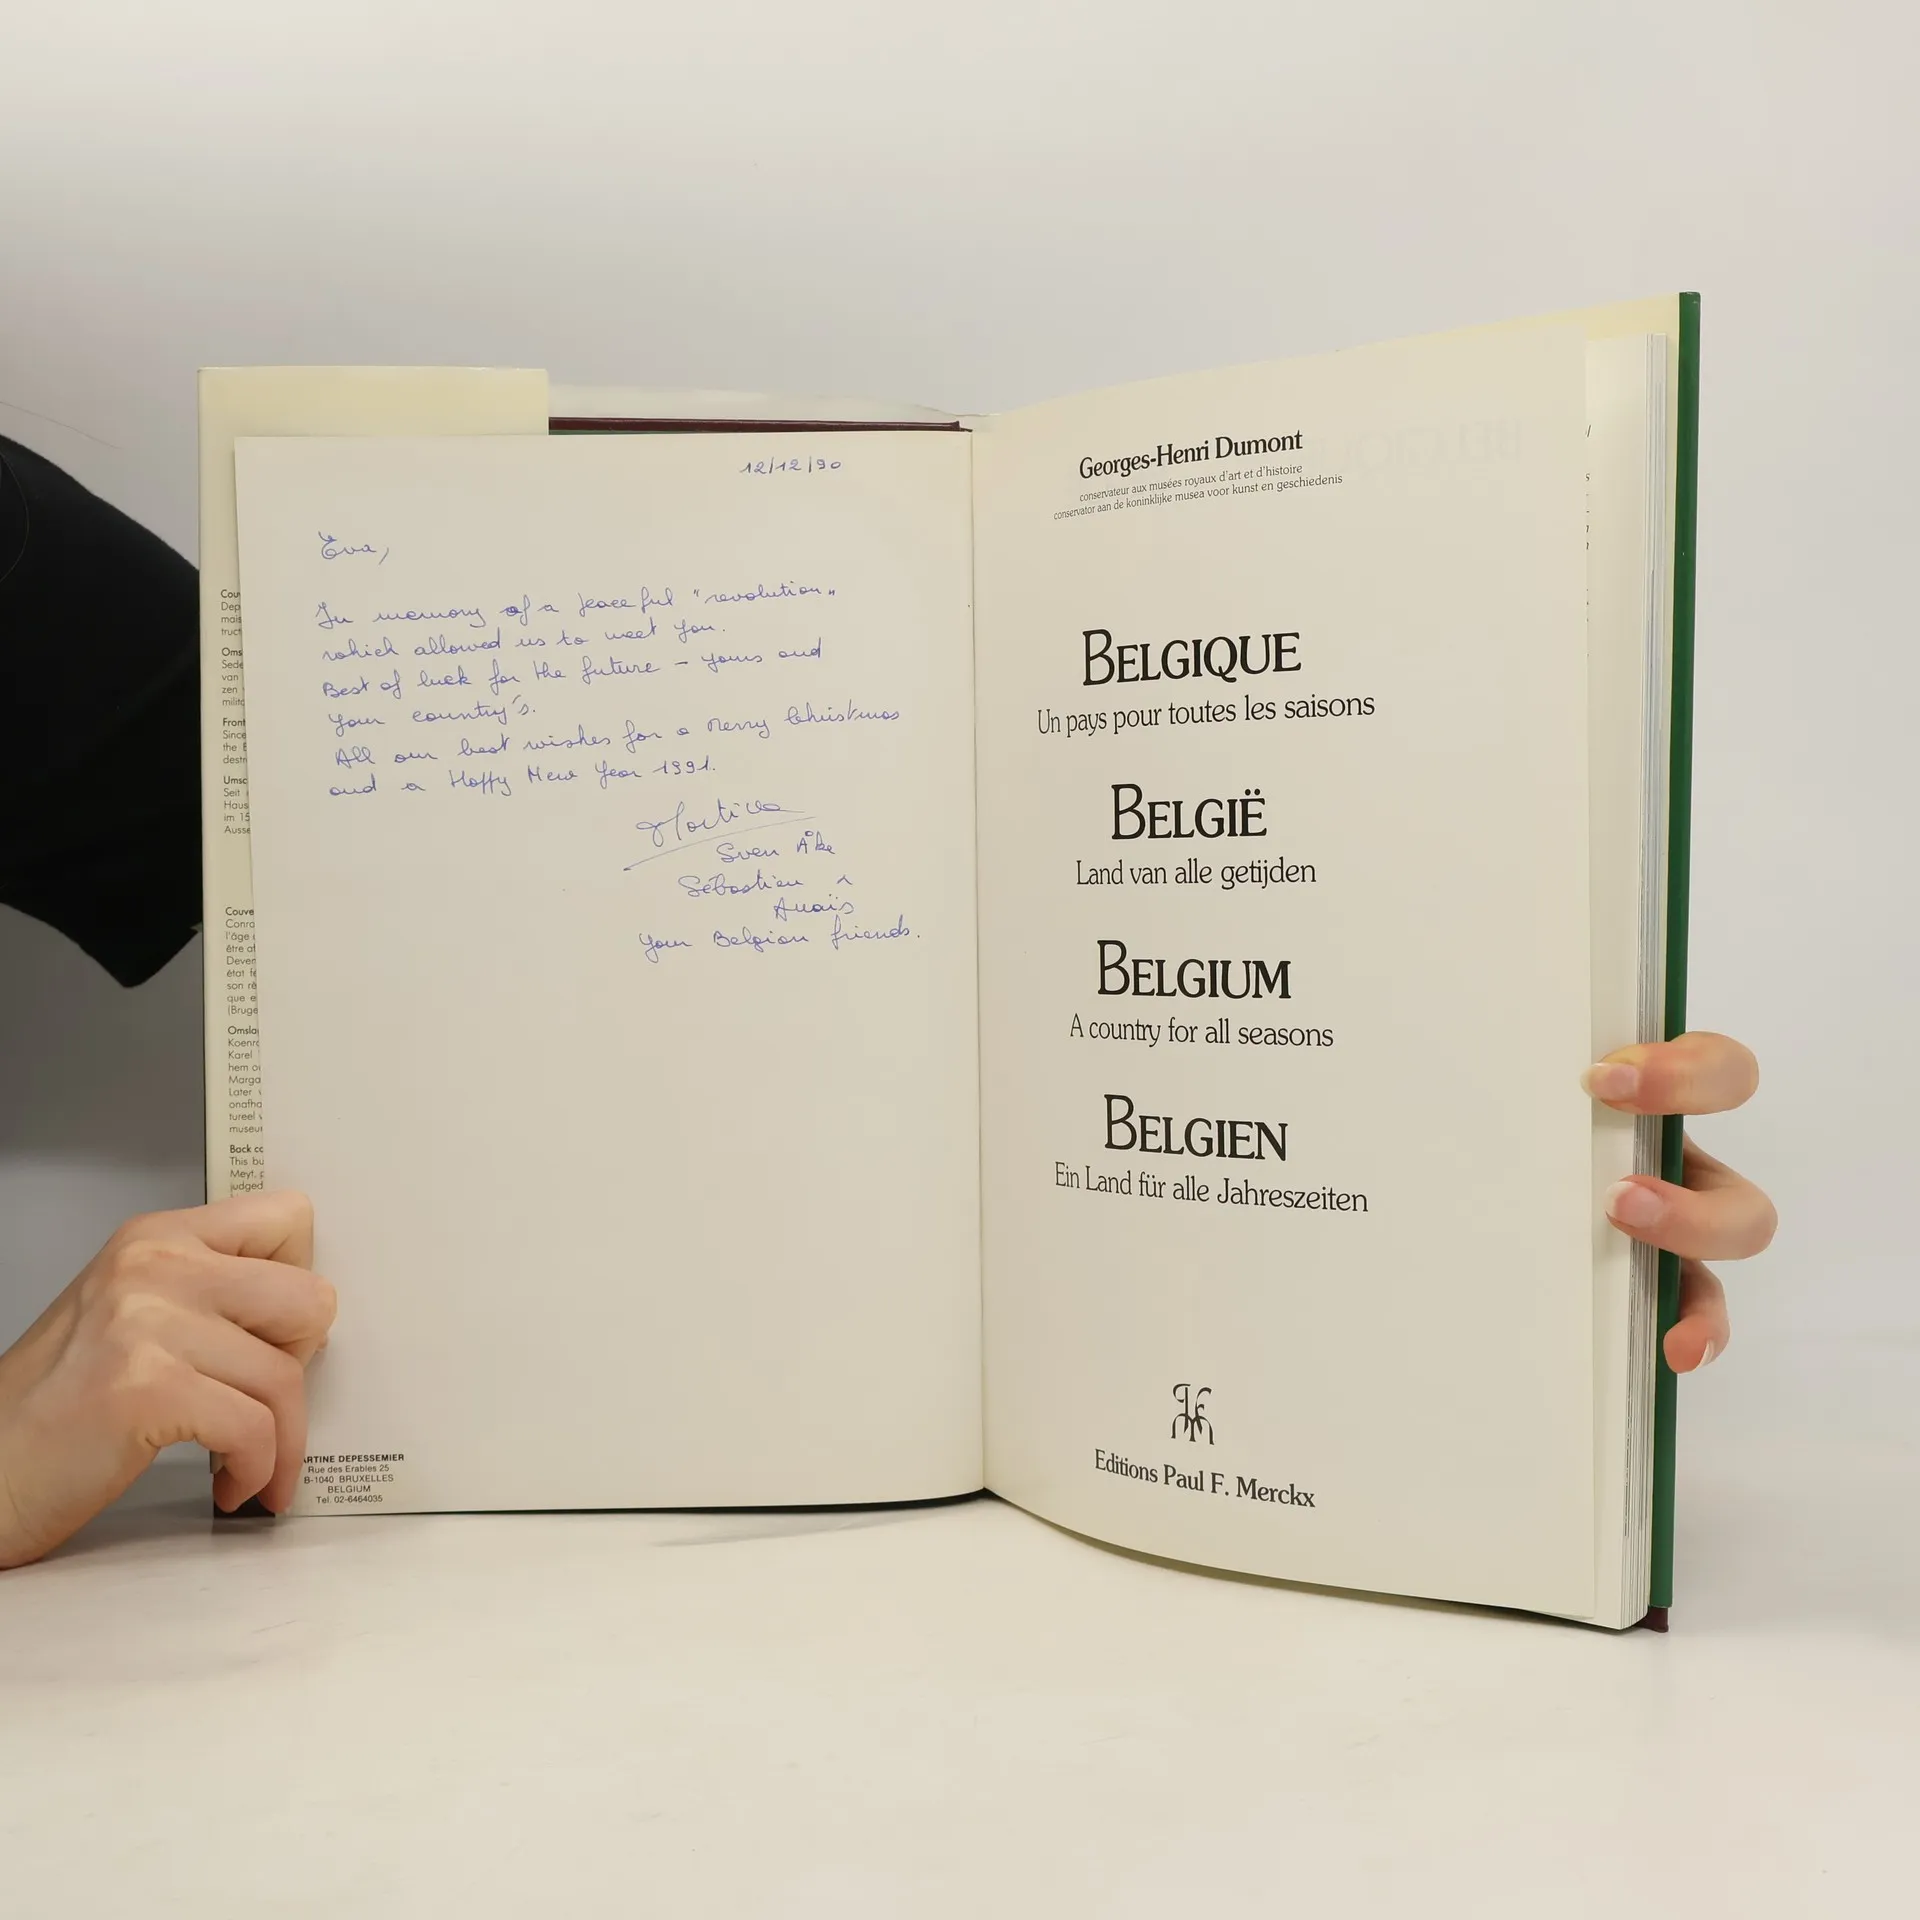 12/12/90
Eva,
In memory of a peaceful "revolution"
which allowed us to meet you.
Best of luck for the future - yours and
your country's.
All our best wishes for a Merry Christmas
and a Happy New Year 1991.
Martine
Sven Åke
Sébastien
Anaïs
Your Belgian friends.
RTINE DEPESSEMIER
Rue des Erables 25
B-1040 BRUXELLES
BELGIUM
Tel. 02-6464035
Georges-Henri Dumont
conservateur aux musées royaux d'art et d'histoire
conservator aan de koninklijke musea voor kunst en geschiedenis
BELGIQUE
Un pays pour toutes les saisons
BELGIË
Land van alle getijden
BELGIUM
A country for all seasons
BELGIEN
Ein Land für alle Jahreszeiten
Editions Paul F. Merckx